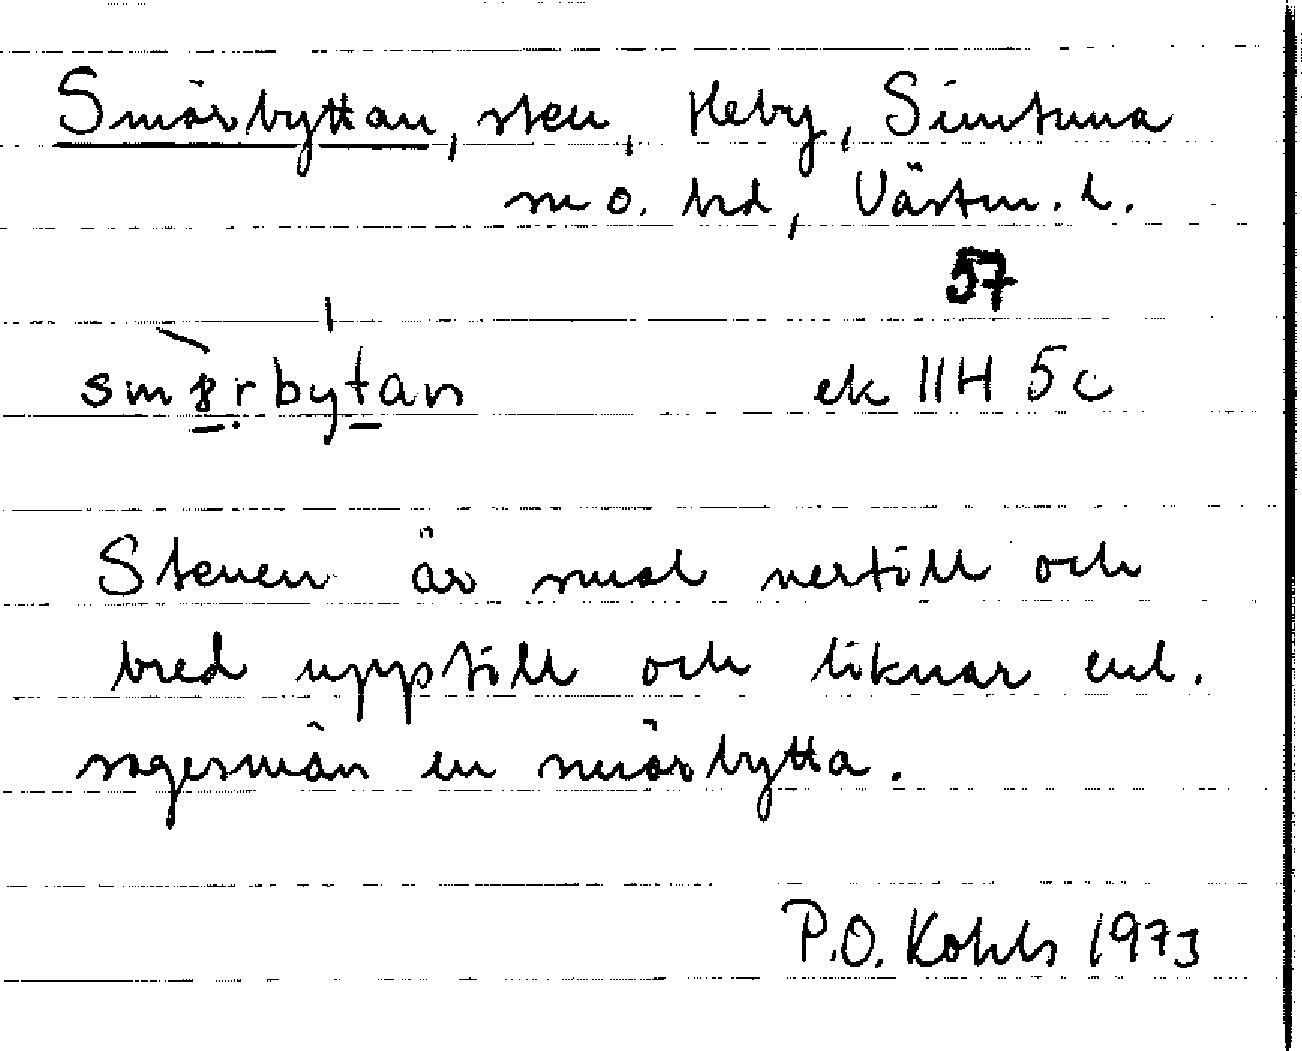 Smörbyttan, sten, Heby, Simtuna
m o. hd, Västm. l.
57
ek 11H 5c
Stenen är smal nertill och
bred upptill och liknar enl.
sagesmän en smörbytta.
P.O. Kohls 1973